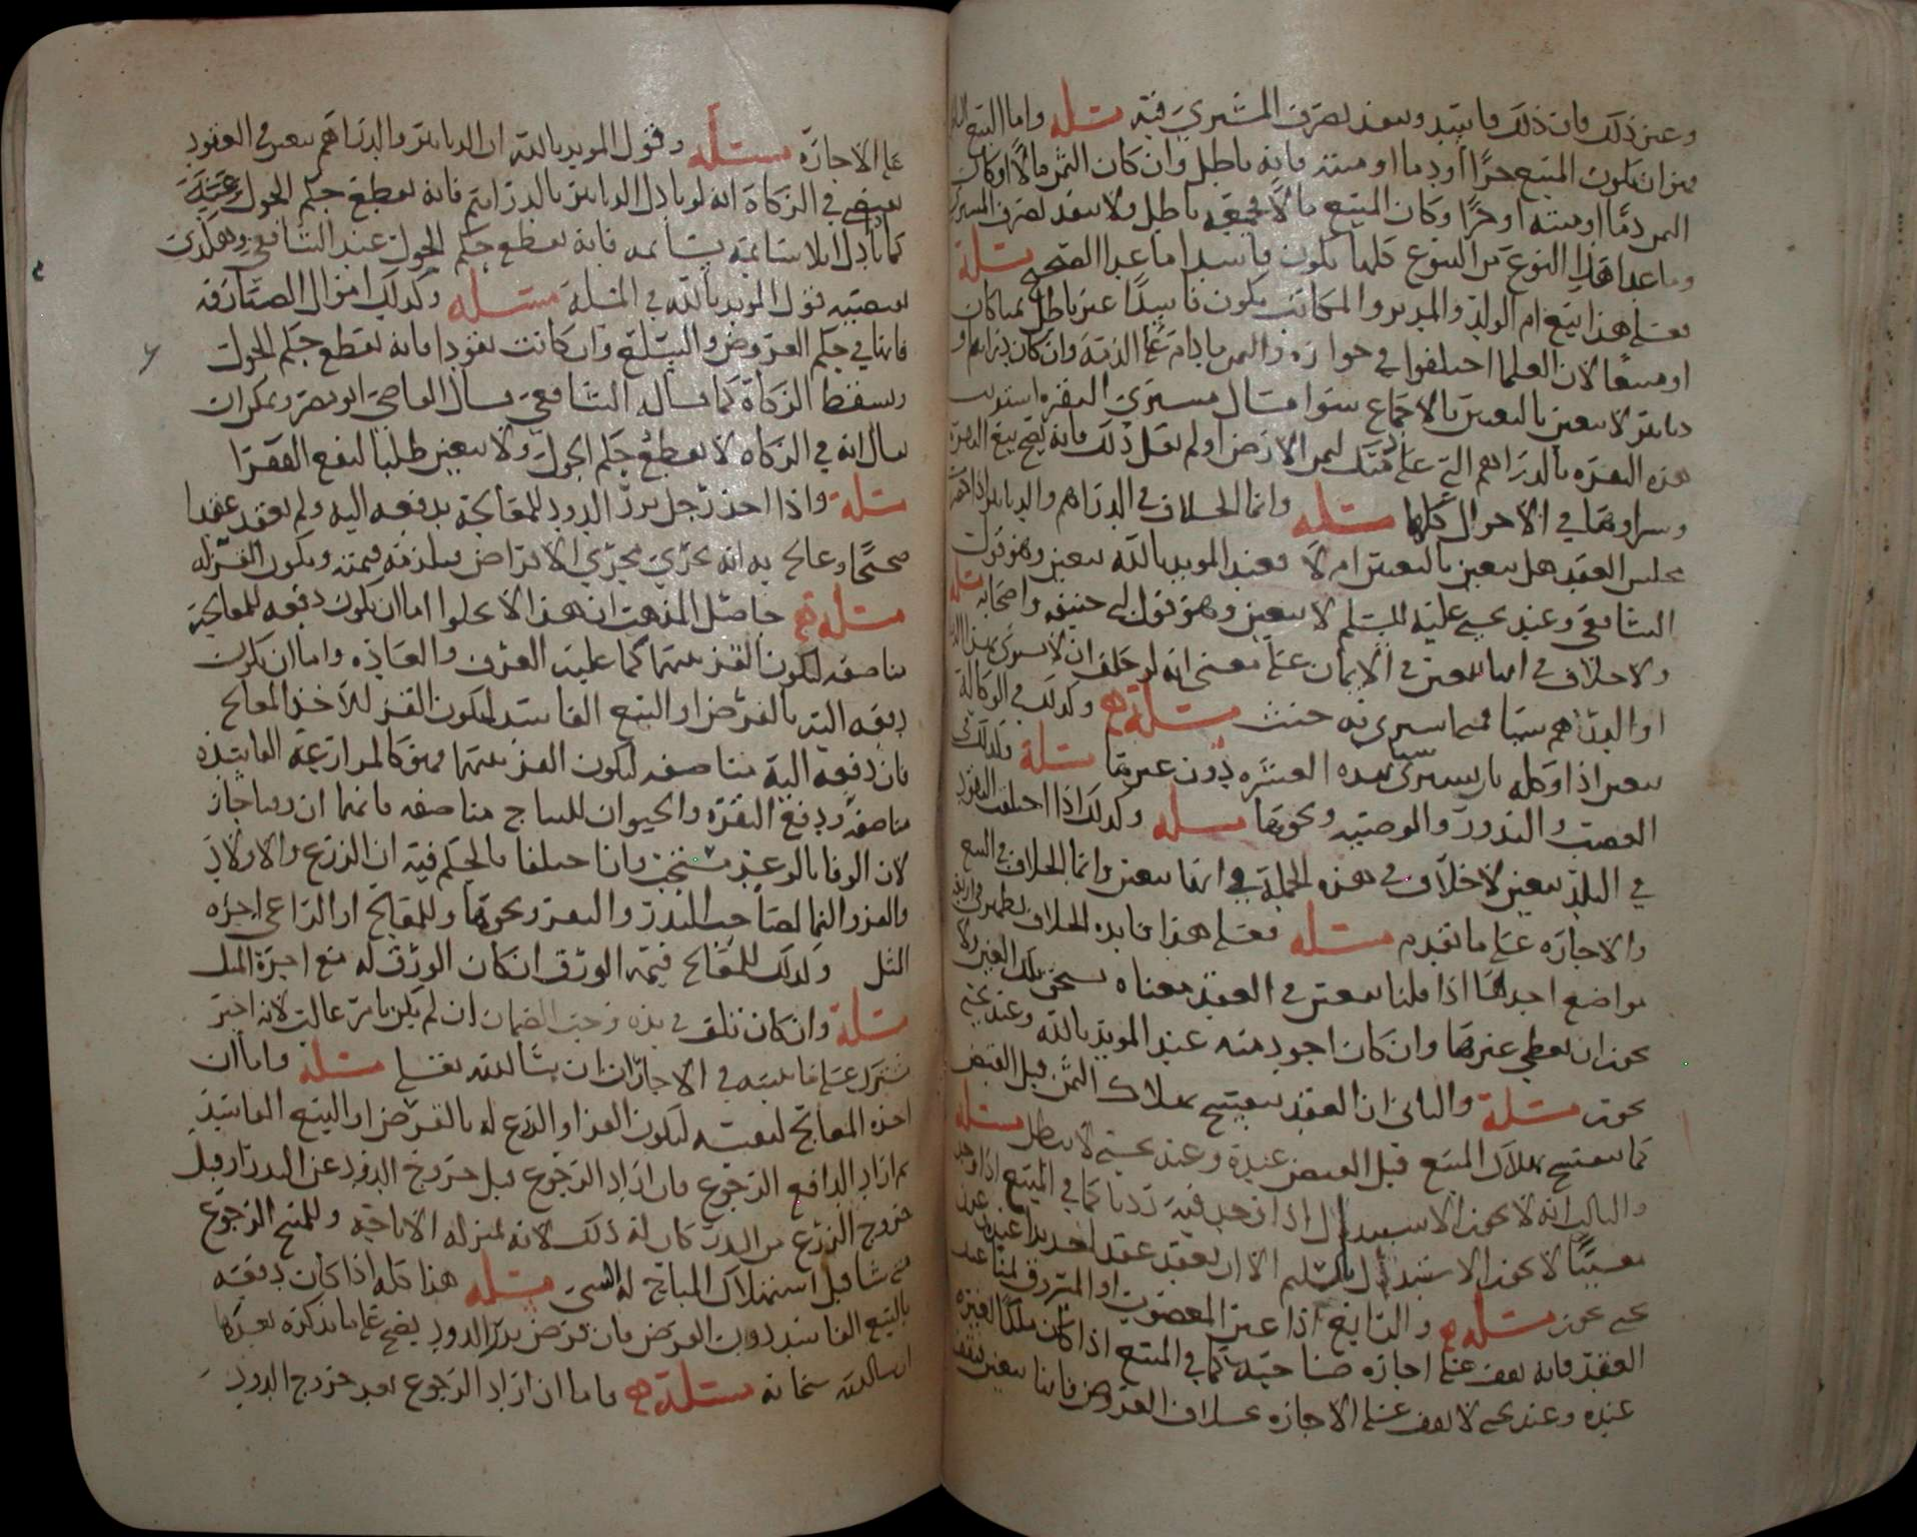 وعن ذلك فان ذلك فاسد وينفذ تصرف المشتري فيه مسئله واما البيع الباطل
فهو ان يكون المبيع حرا او دما او ميتة فانه باطل وان كان الثمن مالا او كان
الثمن دما او ميته او حرا وكان المبيع مالا فجميعه باطل ولا ينفذ تصرف المشتري
وما عدا هذا النوع من البيوع كلها يكون فاسدا ما عدا الصحيح مسئلة
فعلى هذا بيع ام الولد والمدبر والمكاتب يكون فاسدا غير باطل
لان العلما اختلفوا في جوازه والثمن ما دام على الذمة وان كان دراهم او
دنانير لا يتعين بالتعين بالاجماع سوا قال مشتري البقره اشتريت
هذه البقره بالدراهم التي عليك ثمن الارض او لم يقل ذلك فانه يصح بيع البقرة
وشراوها في الاحوال كلها مسئله وانما الخلاف في الدراهم والدنانير اذا
مجلس العقد هل يتعين بالتعين ام لا فعند المويد بالله يتعين وهو قول
الشافعي وعند يحيى عليه السلم لا يتعين وهو قول ابي حنيفه واصحابه مسئله
ولا خلاف في انها تتعين في الايمان على معنى انه لو حلف ان لا يشتري بهذه
او الدراهم شيا فمتى اشترى به حنث مسئلة وكذلك في الوكالة
يتعين اذا وكله بان يشتري بهذه العشره دون غيرها مسئلة وكذلك في
الغصب والنذور والوصيه ونحوها مسئله وكذلك اذا اختلف النقود
في البلد يتعين لا خلاف في هذه الجملة في انها تتعين وانما الخلاف في البيع
والاجاره على ما تقدم مسئله فعلى هذا فايده الخلاف تظهر في اربعة
مواضع احدها اذا قلنا يتعين في العقد معناه يستحق تلك العين ولا
يجوز ان يعطي غيرها وان كان اجود منه عند المويد بالله وعند يحيى
يجوز مسئلة والثاني ان العقد ينفسخ بهلاك الثمن قبل القبض
كما ينفسخ بهلاك المبيع قبل القبض عنده وعند يحيى لا يبطل مسئله
والثالث انه لا يجوز الاستبدال اذا وجد فيه رديا كما في المبيع اذا وجد
معيبا لا يجوز الاستبدال بالسليم الا ان يعقد عقدا جديدا عنده وعند
يحيى يجوز مسئلة والرابع اذا عين المغصوب او المسروق ثمنا عند
العقد فانه يقف على اجازه صاحبه كما في المبيع اذا كان ملكا لغيره
عنده وعند يحيى لا يقف على الاجازه بخلاف العروض فانها تتعين فيقف
على الاجازه مسئله وقول المويد بالله ان الدنانير والدراهم تتعين في العقود
يقتضي في الزكاة انه لو بادل الدنانير بالدراهم فانه يقطع حكم الحول
كما لو بادل ابلا سائمة بسائمه فانه يقطع حكم الحول عند الشافعي وهكذى
يقتضيه قول المويد بالله في المسئلة مسئله وكذلك اموال الصيارفه
فانها في حكم العروض والسلع وان كانت نقودا فانه يقطع حكم الحول
ويسقط الزكاة كما قاله الشافعي قال القاضي ابو مضر ويمكن ان
يقال انه في الزكاة لا يقطع حكم الحول ولا يتعين طلبا لنفع الفقرا
مسئلة واذا اخذ رجل بزر الدود للمعالجة بدفعه اليه ولم يعقد عقدا
صحيحا وعالج به انه يجري مجرى الاقتراض فيلزمه قيمته ويكون القز له
مسئلة حاصل المذهب ان هذا لا يخلوا اما ان يكون دفعه للمعالجة
مناصفه ليكون القز بينهما كما عليه العرف والعاده واما ان يكون
دفعه اليه بالقرض او البيع الفاسد ليكون القز للآخذ المعالج
فان دفعه اليه مناصفه ليكون القز بينهما فهو كالمزارعة الفاسده
مناصفه ودفع البقرة والحيوان للنتاج مناصفه فانهما ان وفيا جاز
لان الوفا بالوعد مستحب وان اختلفا فالحكم فيه ان الزرع والاولاد
والقز والنما لصاحب البذر والبقر ونحوها وللمعالج او الراعي اجره
المثل وكذلك للمعالج قيمه الورق ان كان الورق له مع اجرة المثل
مسئلة وان كان تلف في يده وجب الضمان ان لم يكن بامر غالب لانه اجير
مشترك على ما نبينه في الاجارات ان شا الله تعالى مسئله واما ان
اخذه المعالج لنفسه ليكون القز او الزرع له بالقرض او البيع الفاسد
ثم اراد الدافع الرجوع فان اراد الرجوع قبل خروج الدود عن البزر او قبل
خروج الزرع من البذر كان له ذلك لانه بمنزله الاباحه وللمبيح الرجوع
متى شا قبل استهلاك المباح له الشي مسئله هذا كله اذا كان دفعه
بالبيع الفاسد دون القرض فان قرض بزر الدود يصح على ما نذكره بعد هذا
ان شا الله سبحانه مسئلة فاما ان اراد الرجوع بعد خروج الدود